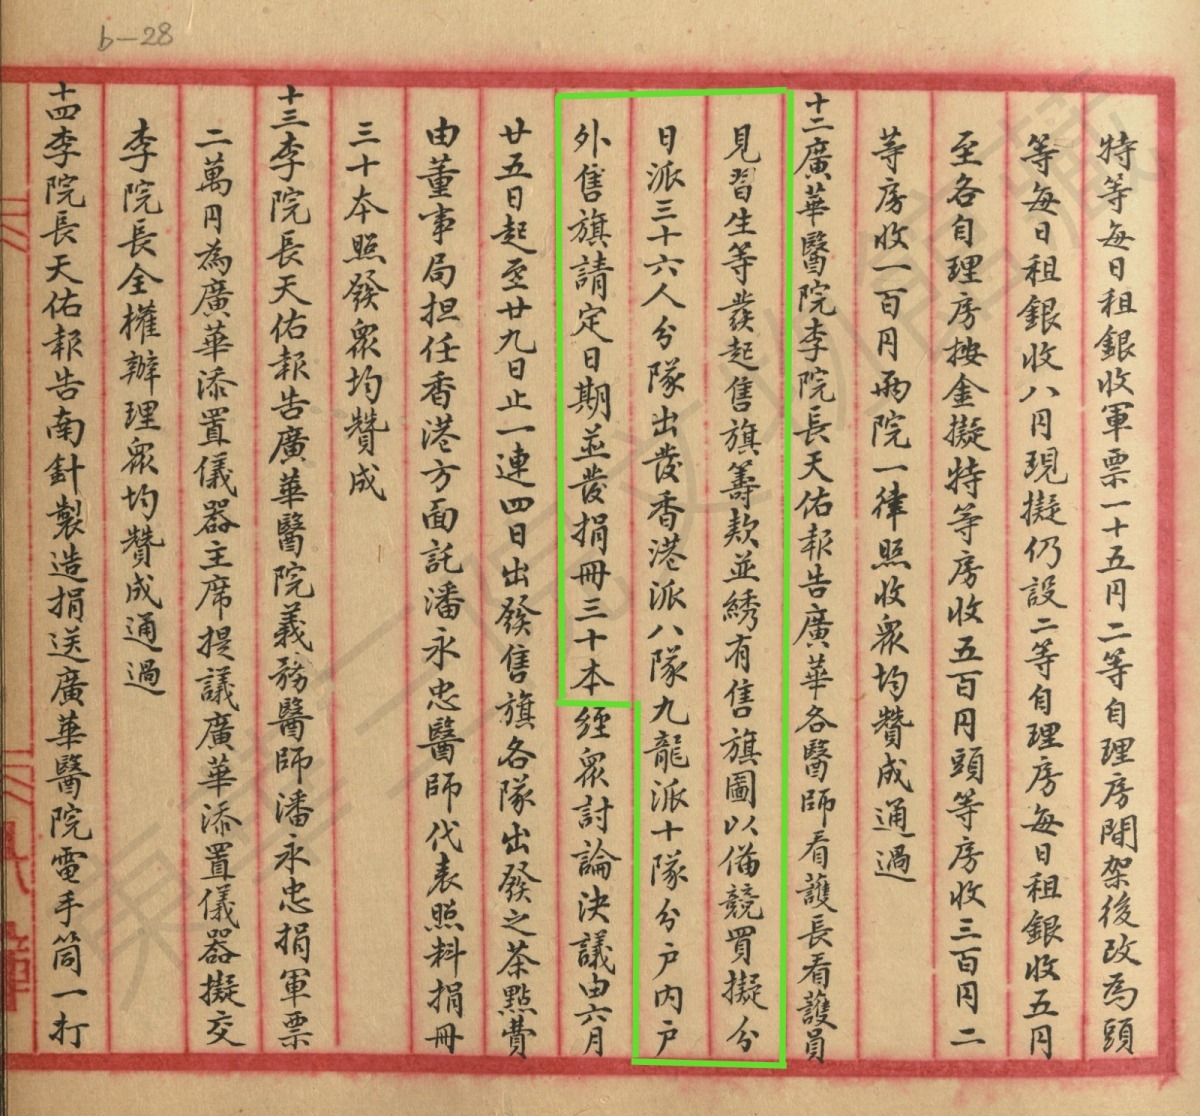 b-28
特等每日租銀收軍票一十五円二等自理房間架後改為頭
等每日租銀收八円現擬仍設二等自理房每日租銀收五円
至各自理房按金擬特等房收五百円頭等房收三百円二
等房收一百円兩院一律照收眾均贊成通過
十二廣華醫院李院長天佑報告廣華各醫師看護長看護員
見習生等發起售旗籌款並綉有售旗圖以俻競買擬分
日派三十六人分隊出發香港派八隊九龍派十隊分户内户
外售旗請定日期並發捐冊三十本經眾討論決議由六月
廿五日起至廿九日止一連四日出發售旗各隊出發之茶點費
由董事局担任香港方面託潘永忠醫師代表照料捐冊
三十本照發眾均贊成
十三李院長天佑報告廣華醫院義務醫師潘永忠捐軍票
二萬円為廣華添置儀器主席提議廣華添置儀器擬交
李院長全權辦理眾均贊成通過
十四李院長天佑報告南針製造捐送廣華醫院電手筒一打
東華三院文物館藏